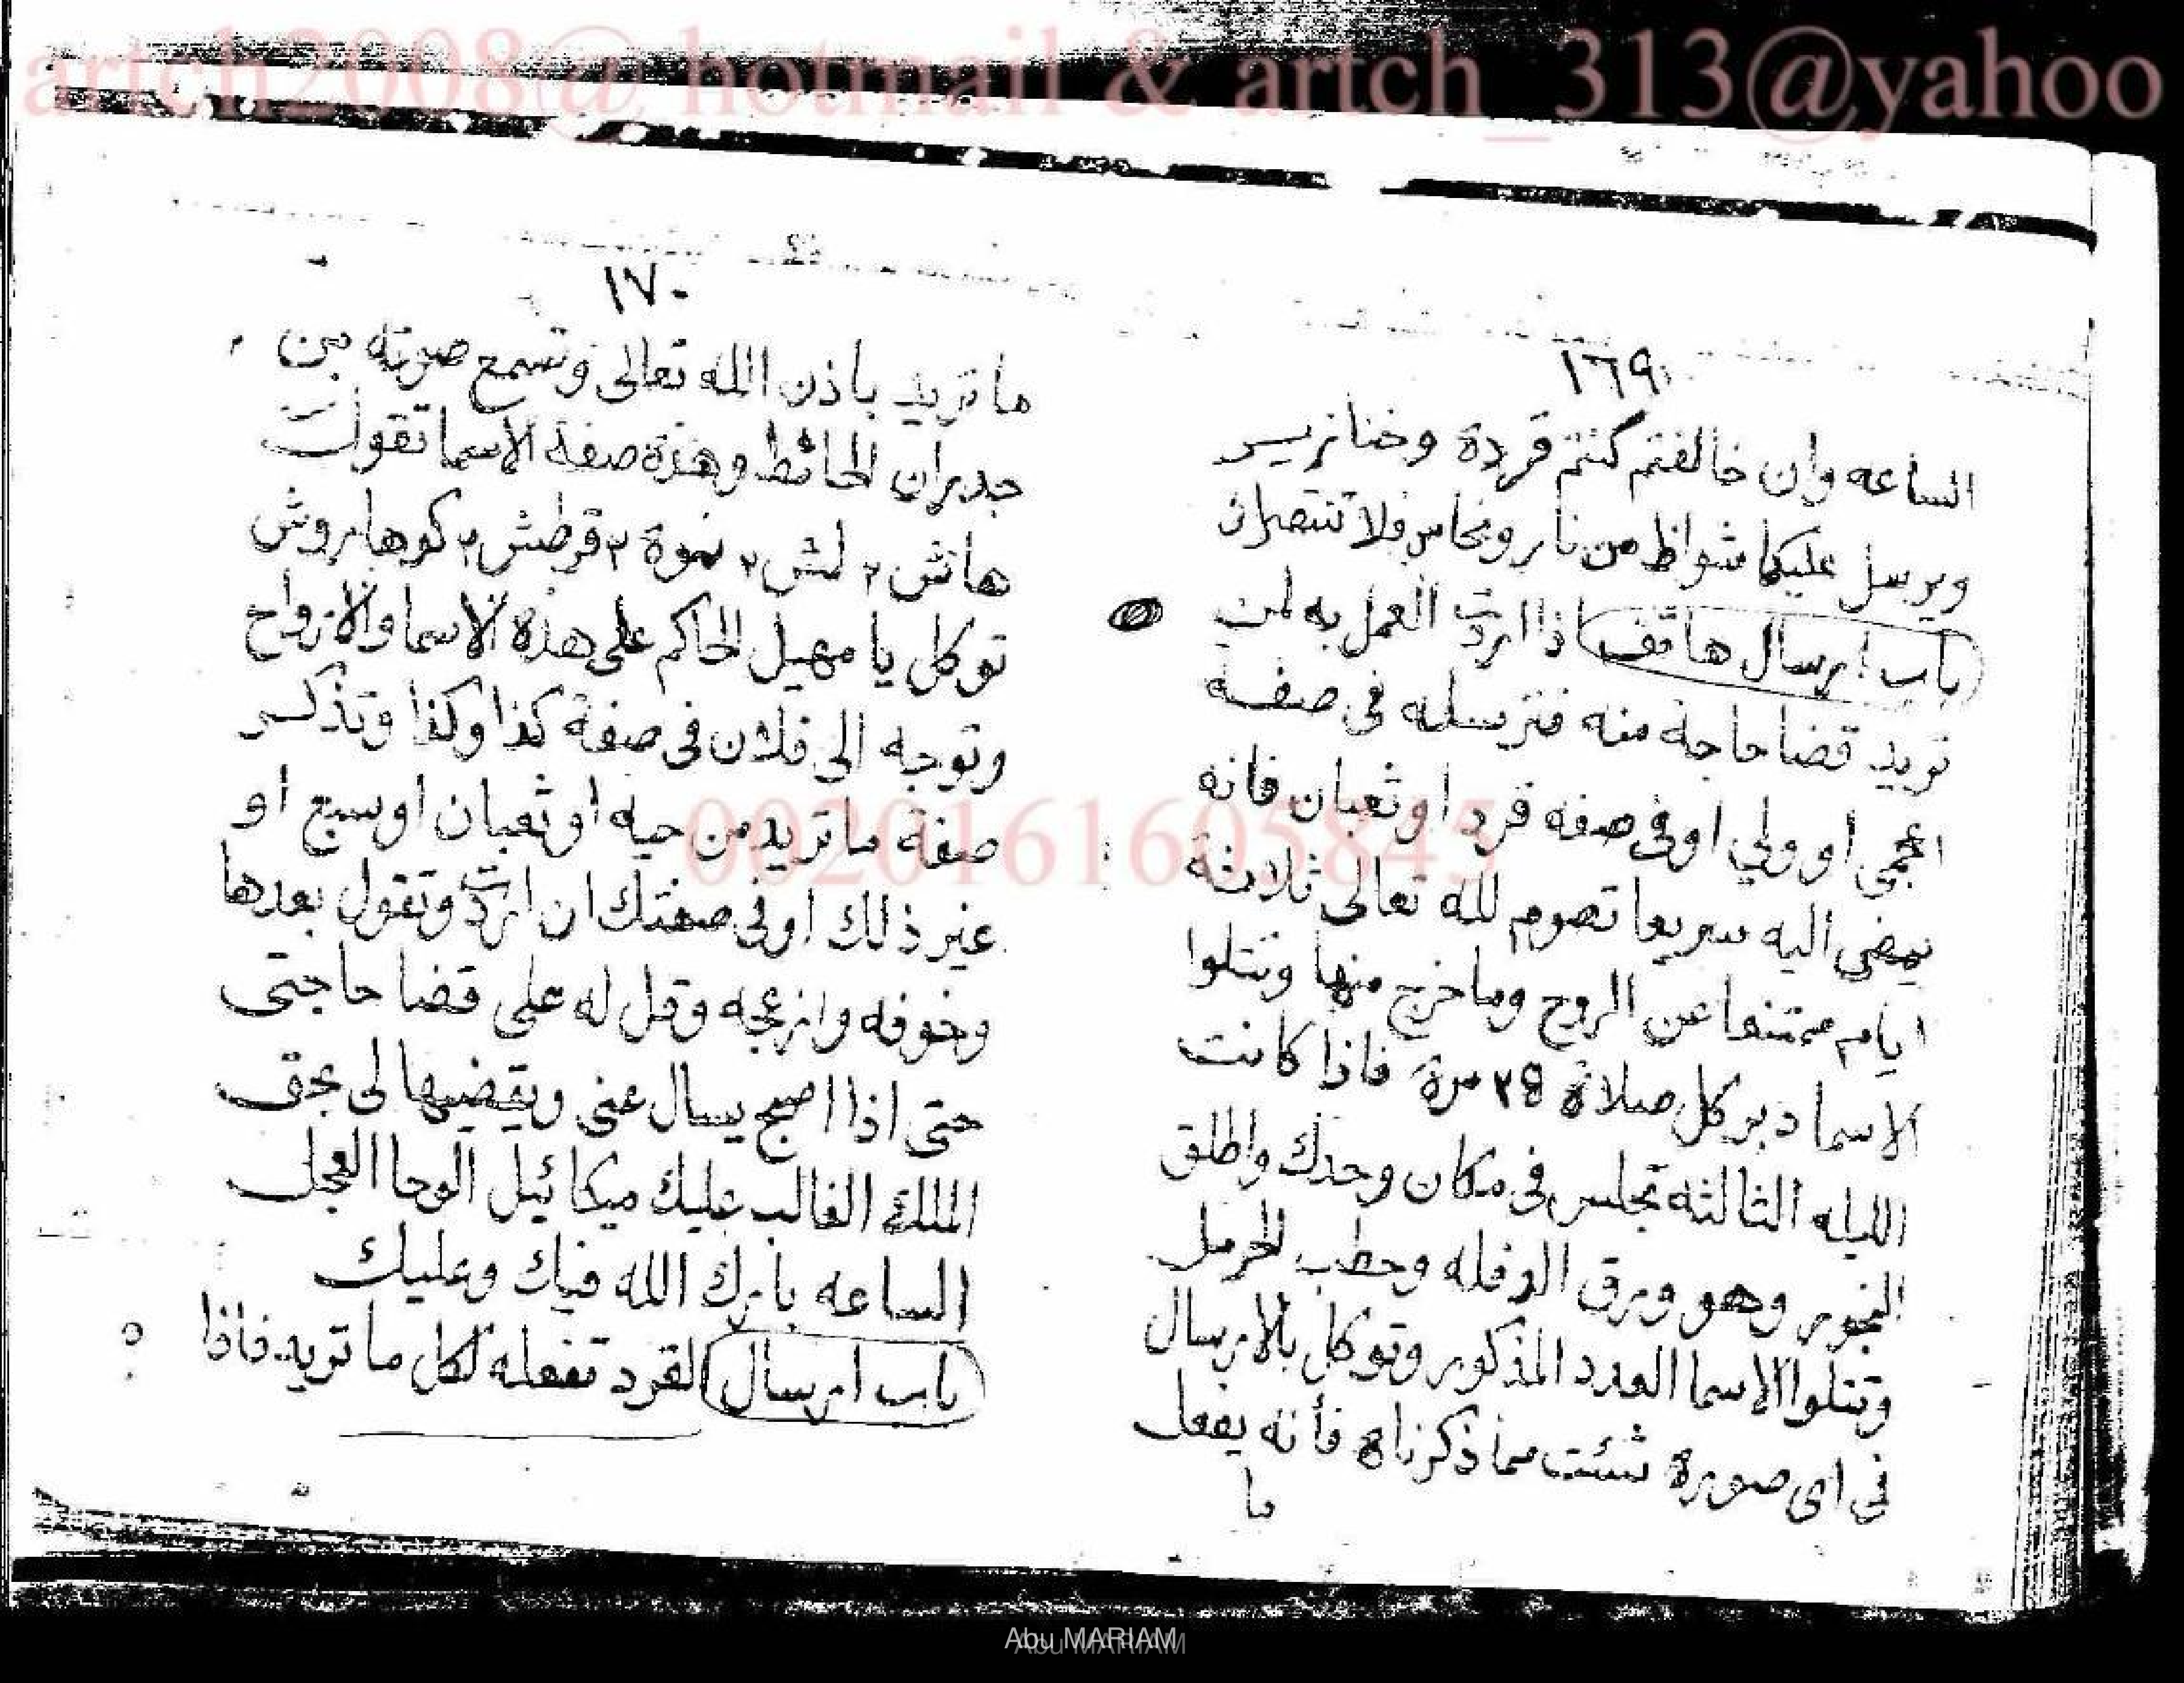 artch2008@ hotmail & artch_313@yahoo
١٦٩
الساعه وان خالفتم كنتم قردة وخنازير
ويرسل عليكما شواظ من نار ونحاس فلا تنتصران
باب ارسال هاتف اذا اردت العمل به لمن
تريد قضا حاجة منه فترسله فى صفة
اعجمى او ولي او فى صفه قرد او ثعبان فانه
يمضى اليه سريعا تصوم لله تعالى ثلاثة
ايام ممتنعا عن الروح وما خرج منها وتتلوا
الاسما دبر كل صلاة مرة فاذا كانت
الليله الثالثه تجلس فى مكان وحدك واطلق
البخور وهو ورق الدفله وحطب الحرمل
وتتلوا الاسما العدد المذكور وتوكل بالارسال
فى اى صورة شئت مما ذكرناه فأنه يفعل
ما
١٧٠
ما تريد باذن الله تعالى وتسمع صوته بين
جدران الحائط وهذه صفة الاسما تقول
هاش ٢ لش ٢ نموة ٢ قرطش ٢ كوهاروش
توكل يا مهيل الحاكم على هذه الاسما والارواح
وتوجه الى فلان فى صفة كذا وكذا وتذكر
صفة ما تريد من حيه او ثعبان او سبع او
غير ذلك او فى صفتك ان اردت وتقول بعدها
وخوفه وازعجه وقل له على قضا حاجتى
حتى اذا اصبح يسال عنى ويقضيها لى بحق
الملك الغالب عليك ميكائيل الوحا العجل
الساعه بارك الله فيك وعليك
باب ارسال القرد تفعله لكل ما تريد فاذا
0020161605845
Abu MARIAM
Abu MARIAM